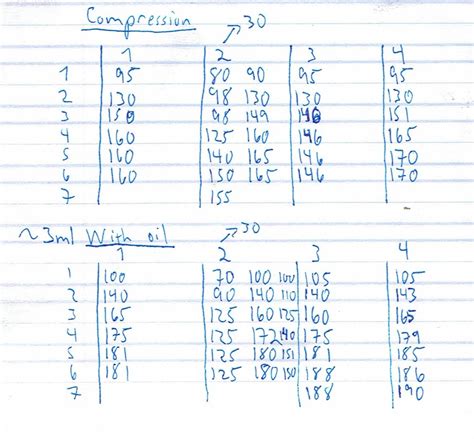 Compression ↗30
1 2 3 4
1 95 80 90 95 95
2 130 98 130 130 130
3 150 98 149 146 151
4 160 125 160 146 165
5 160 140 165 146 170
6 160 150 165 146 170
7 155
~3ml With oil ↗30
1 2 3 4
1 100 70 100 100 105 105
2 140 90 140 110 140 143
3 165 125 160 125 160 165
4 175 125 172 140 175 179
5 181 125 180 151 181 185
6 181 125 180 150 188 186
7 188 190